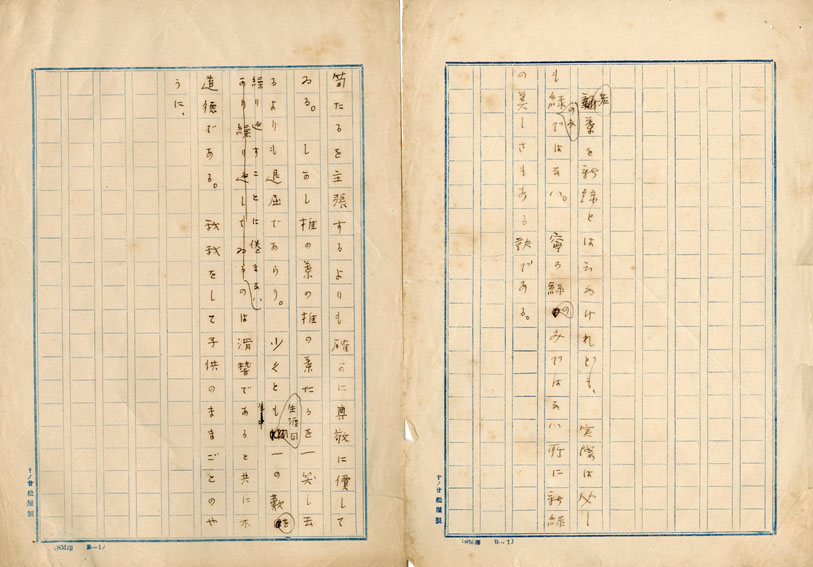 若葉を新緑とは云ふけれども、実際は少し
も緑のみではない。寧ろ緑のみではない所に新緑
の美しさもある訣である。
笥たるを主張するよりも確かに尊敬に價して
ゐる。しかし椎の葉の椎の葉たるを一笑し去
るよりも退屈であらう。少くとも生涯同一の歎を
繰り返すことに倦まない
のは滑稽であると共に不
道徳である。我我をして子供のままごとのや
うに、
十ノ廿松屋製
(SM印 B—1)
十ノ廿松屋製
(SM印 B—1)